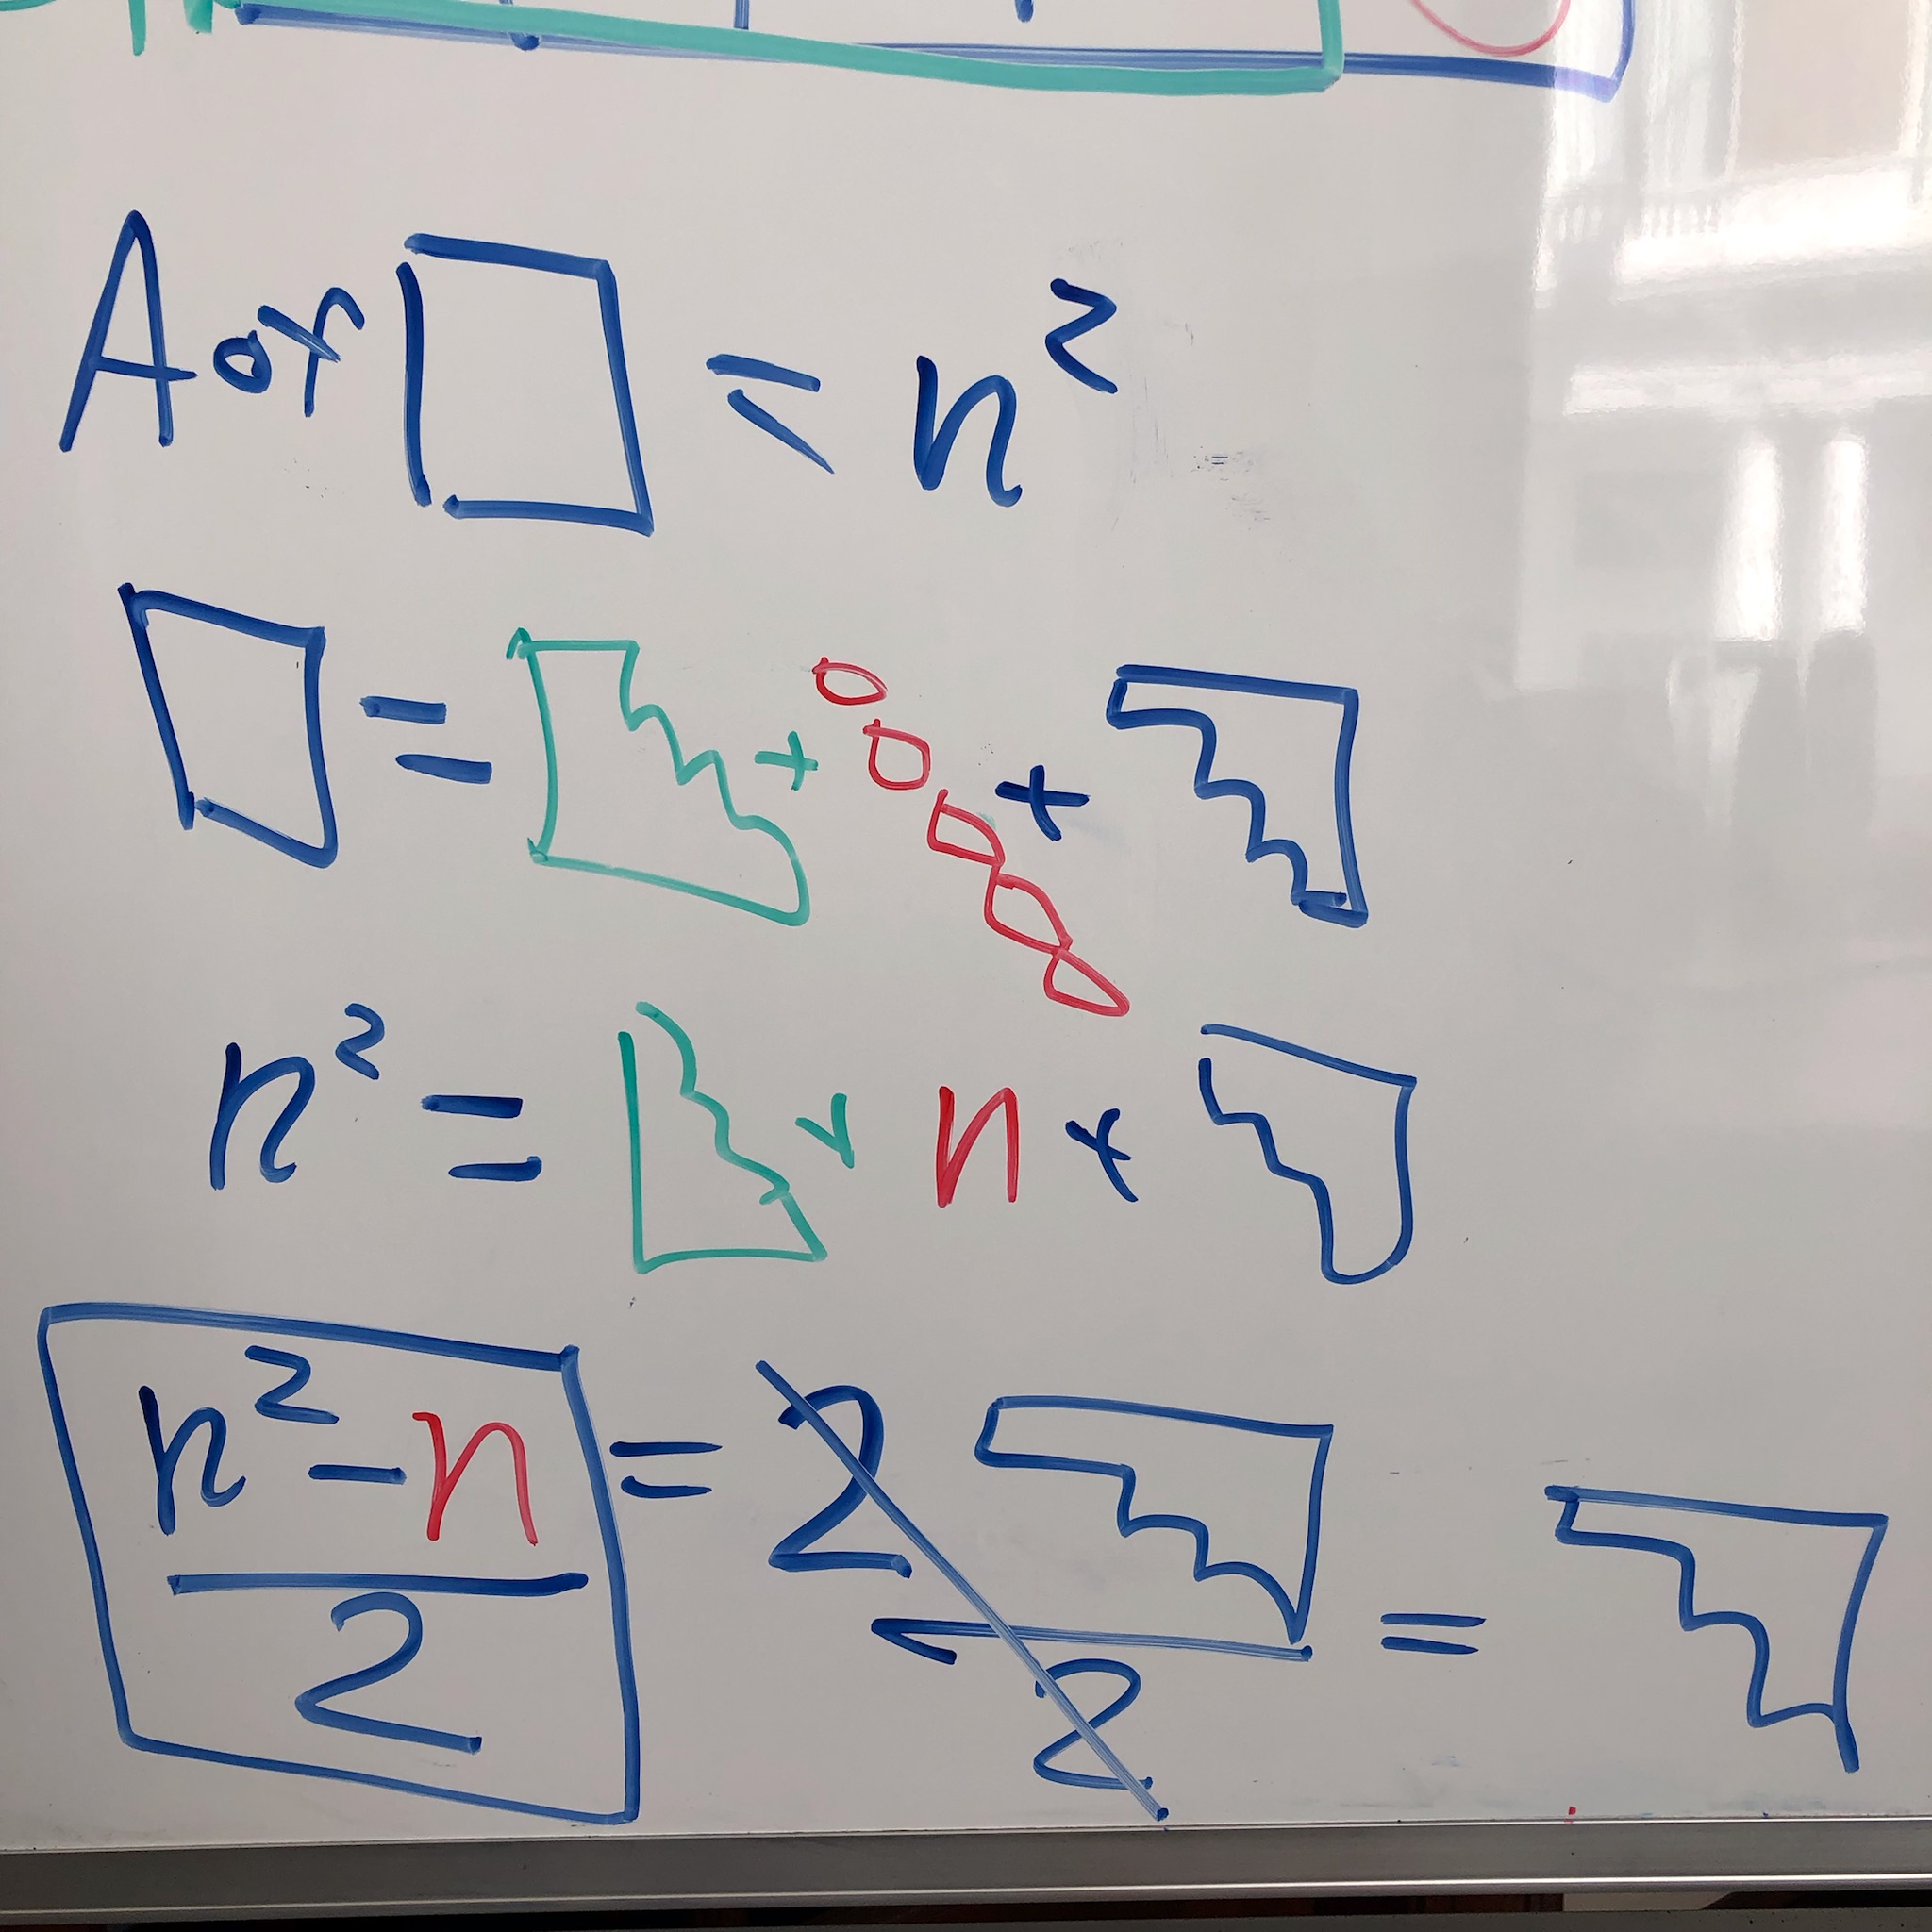 A or □ = n²
□ = + +
n² = + n +
n² - n / 2 = 2 / 2 =